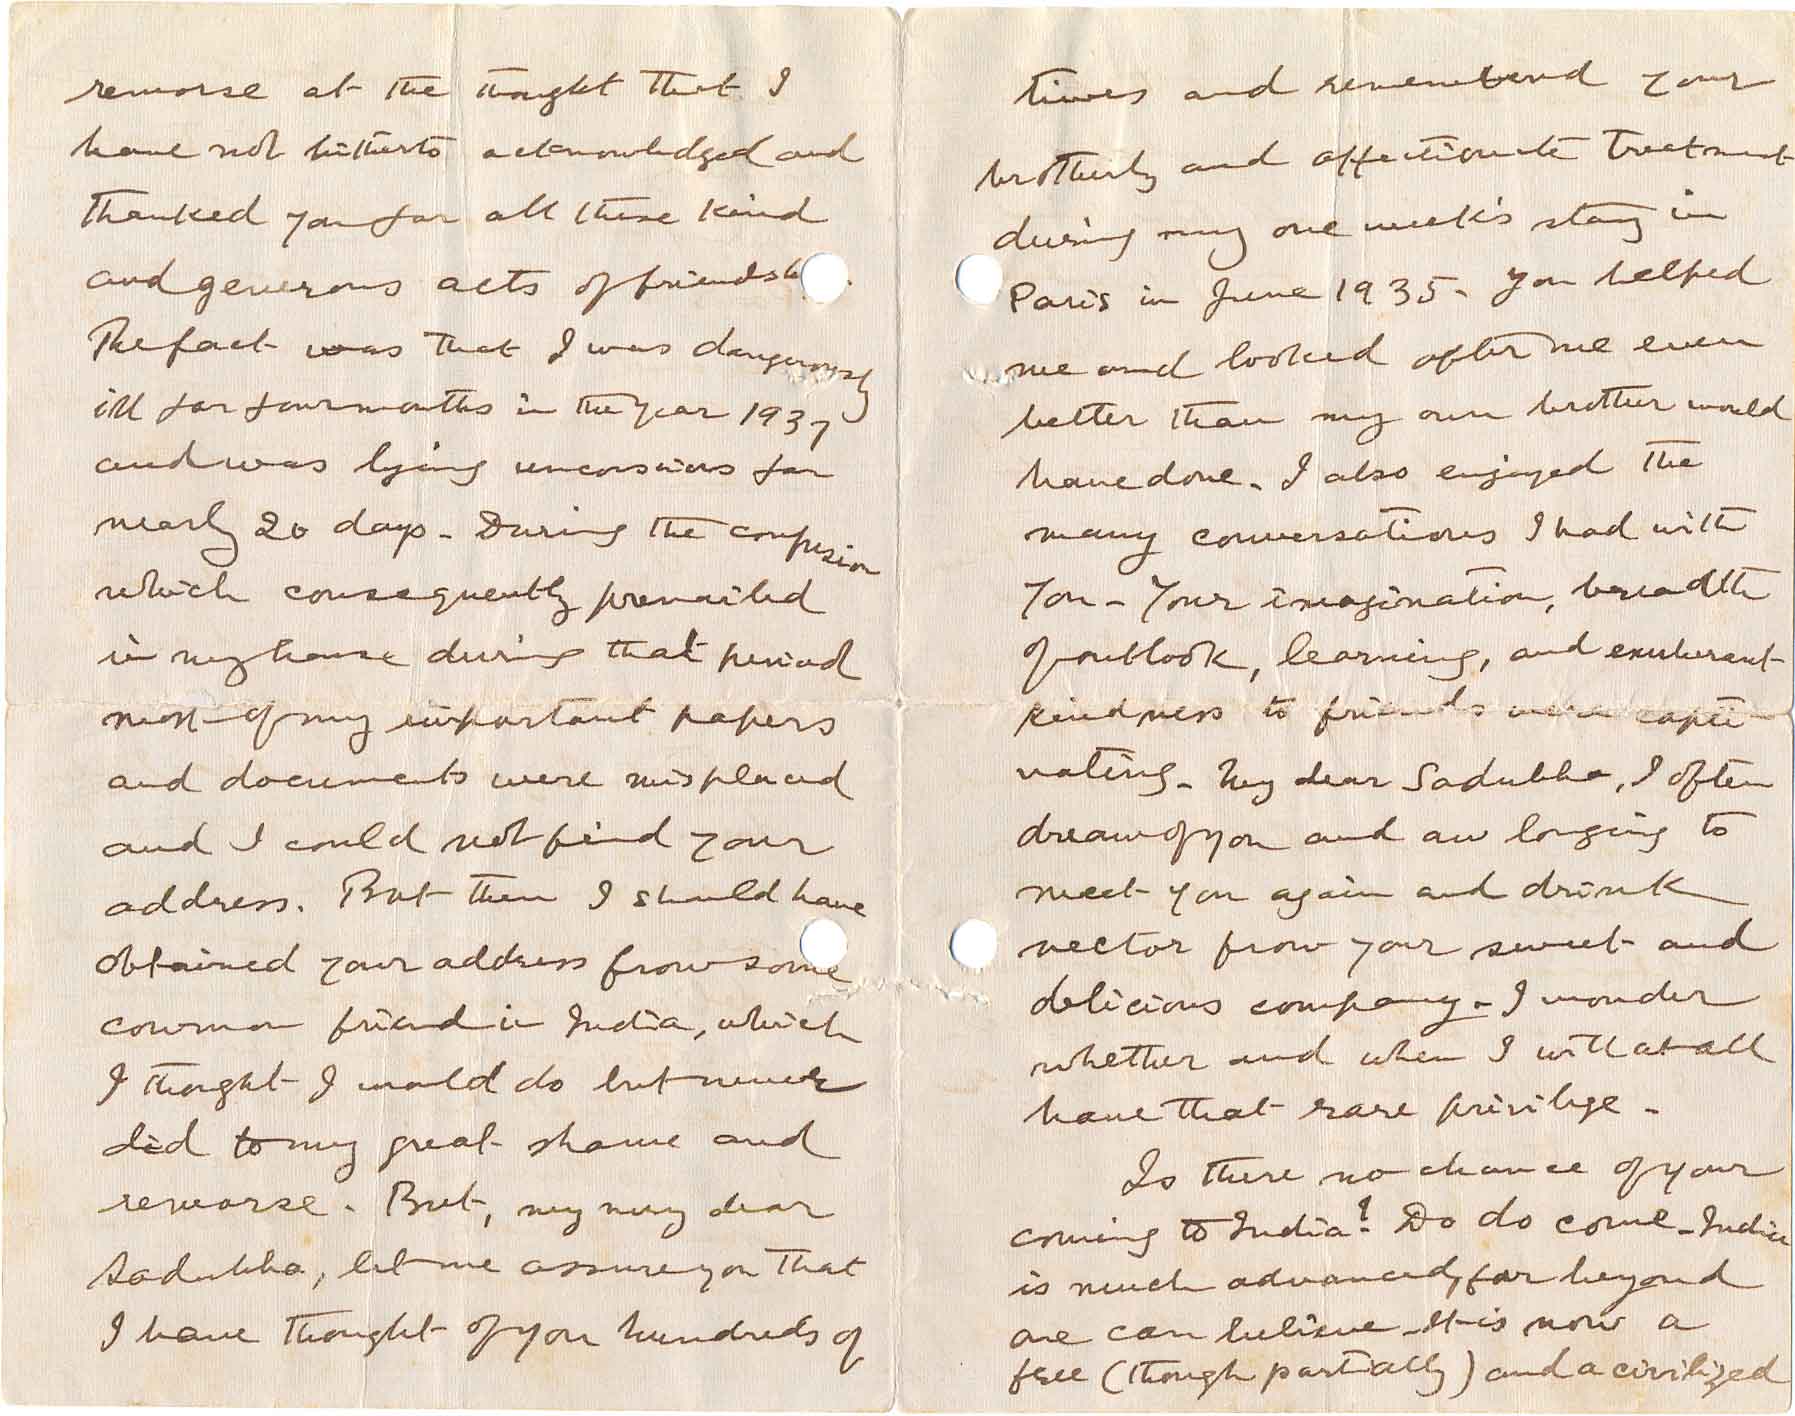 remorse at the thought that I
have not hitherto acknowledged and
thanked you for all these kind
and generous acts of friendsh
The fact was that I was dangerously
ill for four months in the year 1937
and was lying unconscious for
nearly 20 days. During the confusion
which consequently prevailed
in my house during that period
most of my important papers
and documents were misplaced
and I could not find your
address. But then I should have
obtained your address from some
common friend in India, which
I thought I would do but never
did to my great shame and
remorse. But, my very dear
Sadubha, let me assure you that
I have thought of you hundreds of
times and remembered your
brotherly and affectionate treatment
during my one week's stay in
Paris in June 1935. You helped
me and looked after me even
better than my own brother would
have done. I also enjoyed the
many conversations I had with
you. Your imagination, breadth
of outlook, learning, and exuberant
kindness to friends were capti
vating. My dear Sadubha, I often
dream of you and am longing to
meet you again and drink
nector from your sweet and
delicious company. I wonder
whether and when I will at all
have that rare privilege.
Is there no chance of your
coming to India? Do do come. India
is much advanced, far beyond
one can believe. It is now a
free (though partially) and a civilized